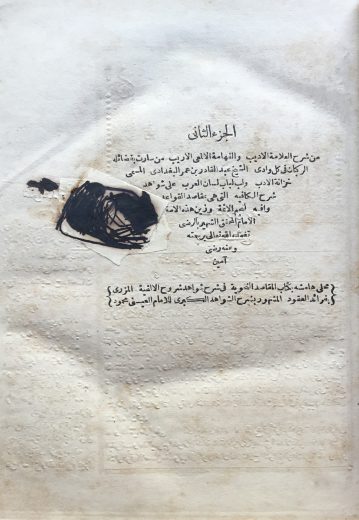 الجزء الثاني
من شرح العلامة الاديب والفهامة الالمعى الاريب من سارت بفضائله
الركبان فى كل وادى الشيخ عبد القادر بن عمر البغدادى المسمى
خزانة الادب ولب لباب لسان العرب على شواهد
شرح الكافيه التى هى بمقاصد القواعد
وافيه لنجم الائمة وزين هذه الامة
الامام المحقق الشهير بالرضى
تغمده الله تعالى برحمته
وعنه رضى
آمين
﴿محلى هامشه بكتاب المقاصد النحوية فى شرح شواهد شروح الالفية المزرى﴾
﴿بفرائد العقود المشهور بشرح الشواهد الكبرى للامام العينى محمود﴾